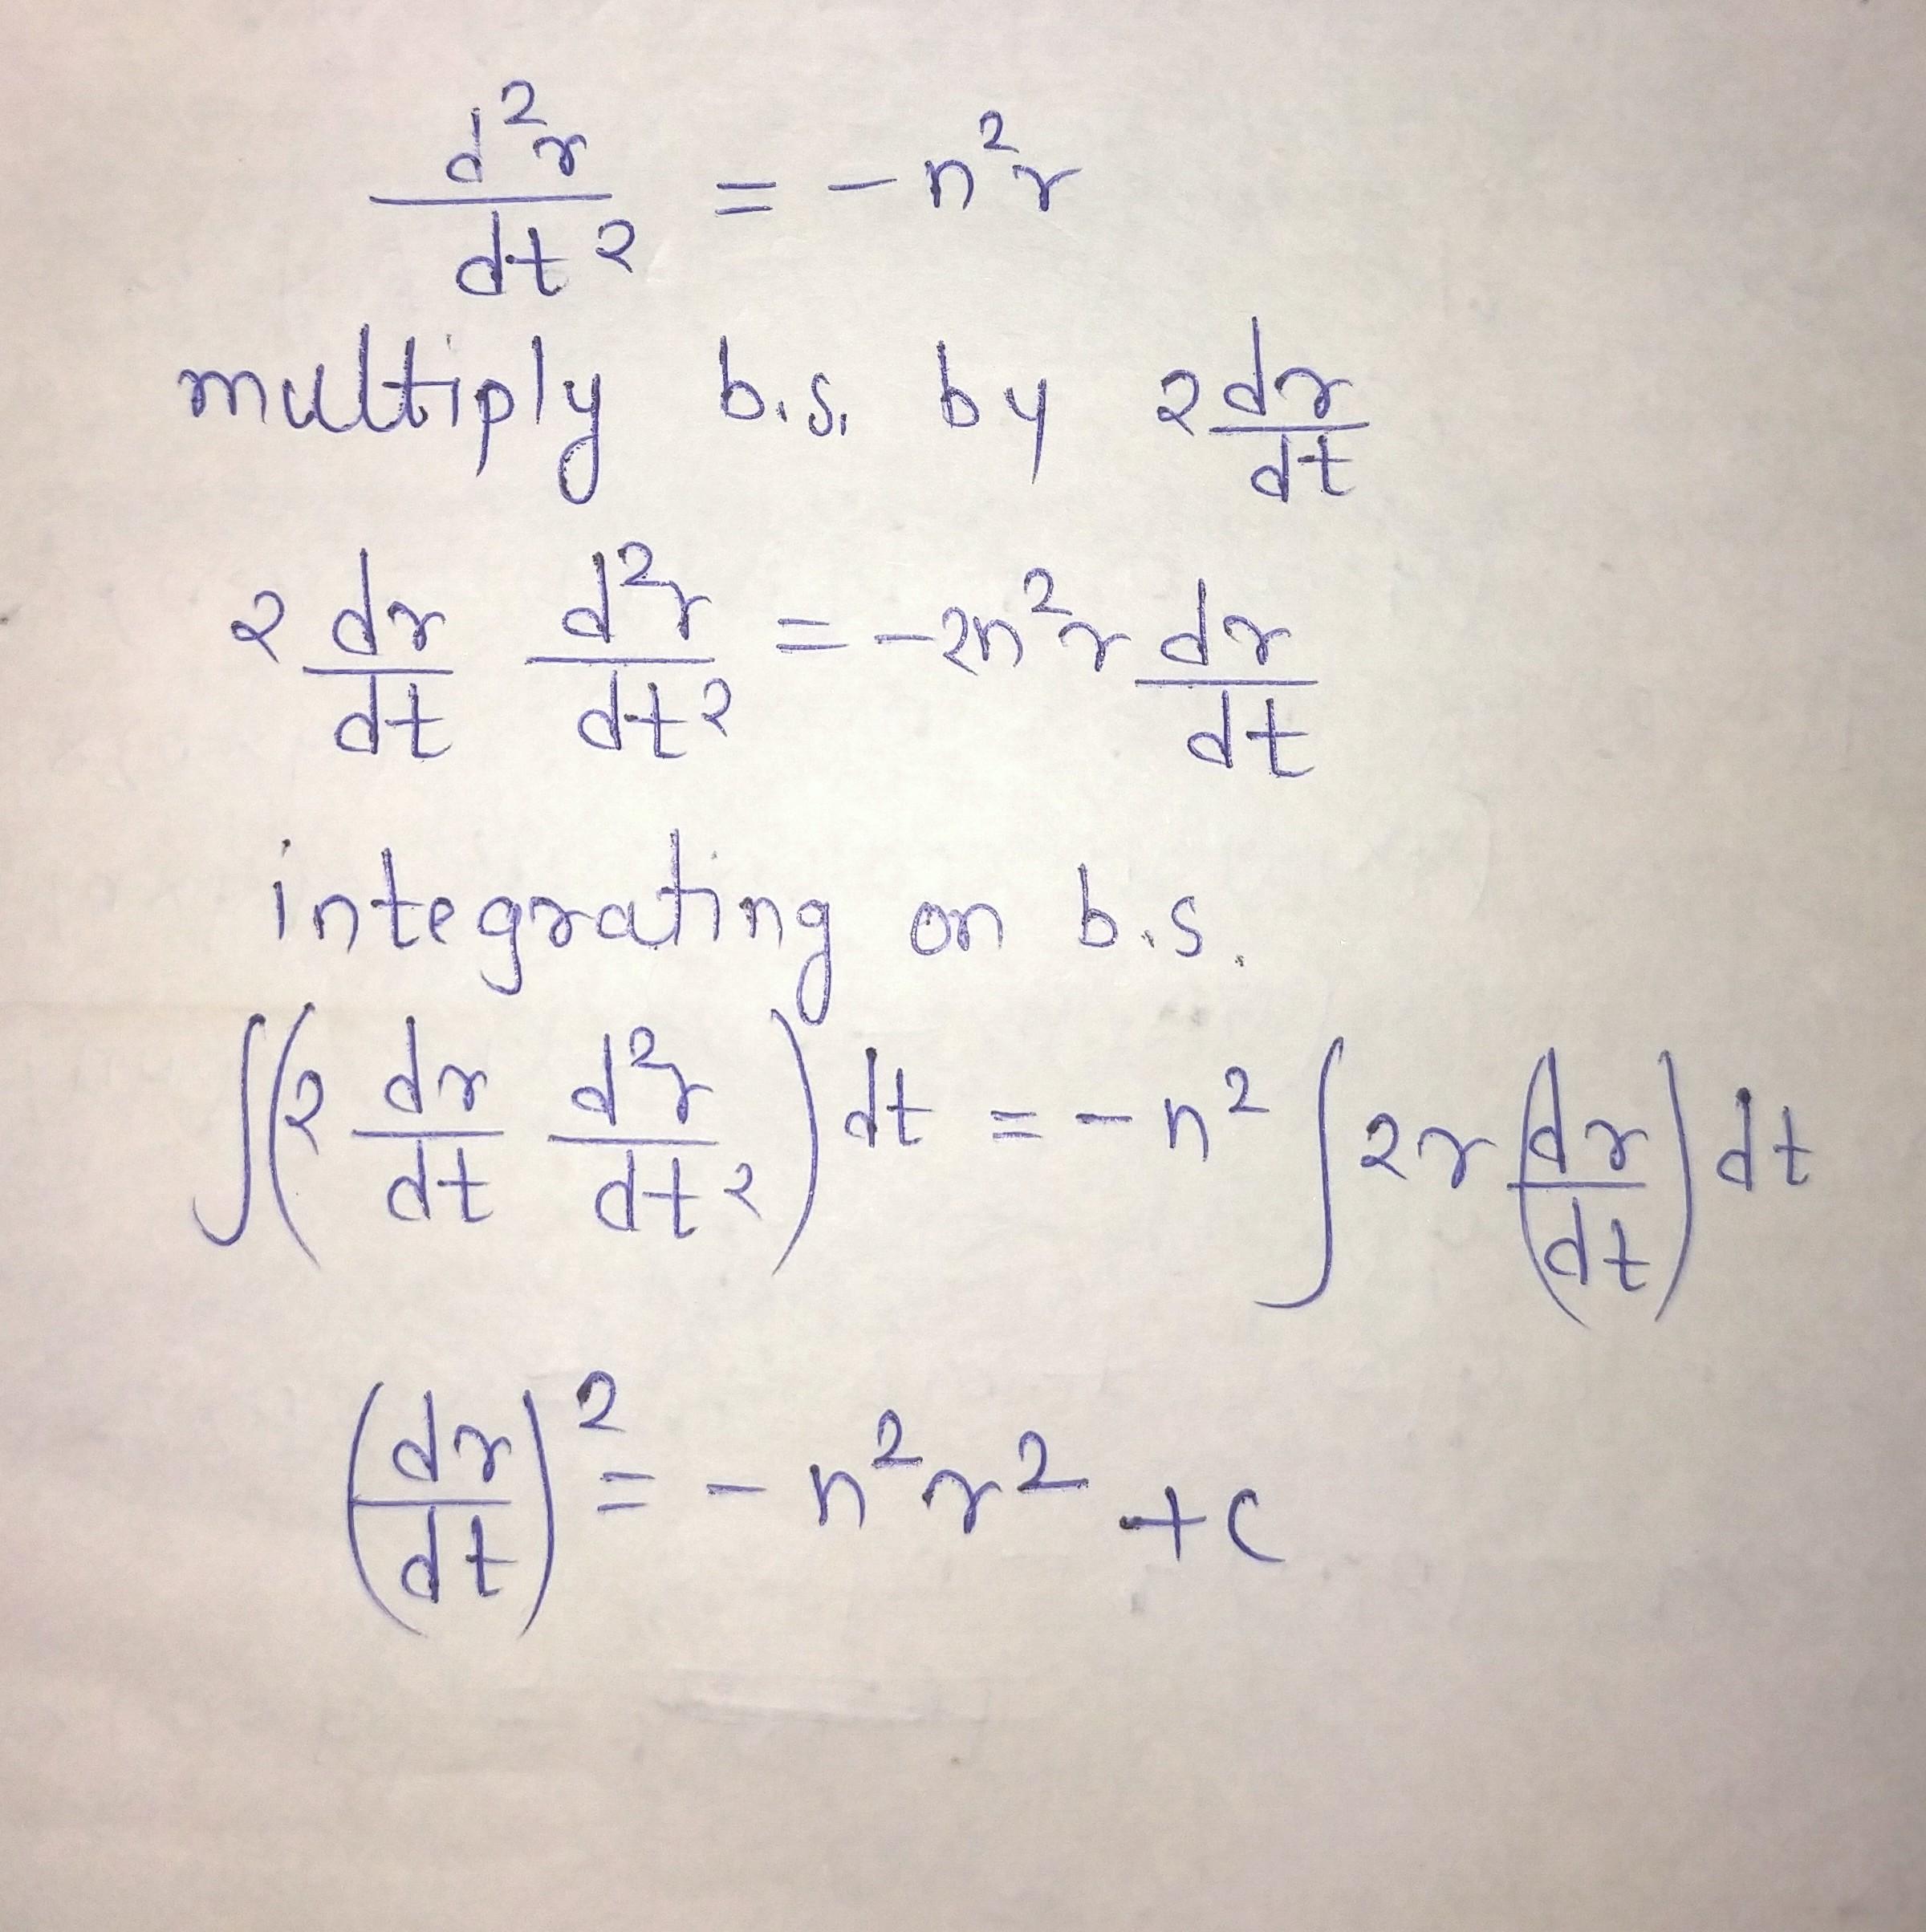 d²r/dt² = -n²r
multiply b.s. by 2 dr/dt
2 dr/dt d²r/dt² = -2n²r dr/dt
integrating on b.s.
∫(2 dr/dt d²r/dt²) dt = -n² ∫2r (dr/dt) dt
(dr/dt)² = -n²r² + c